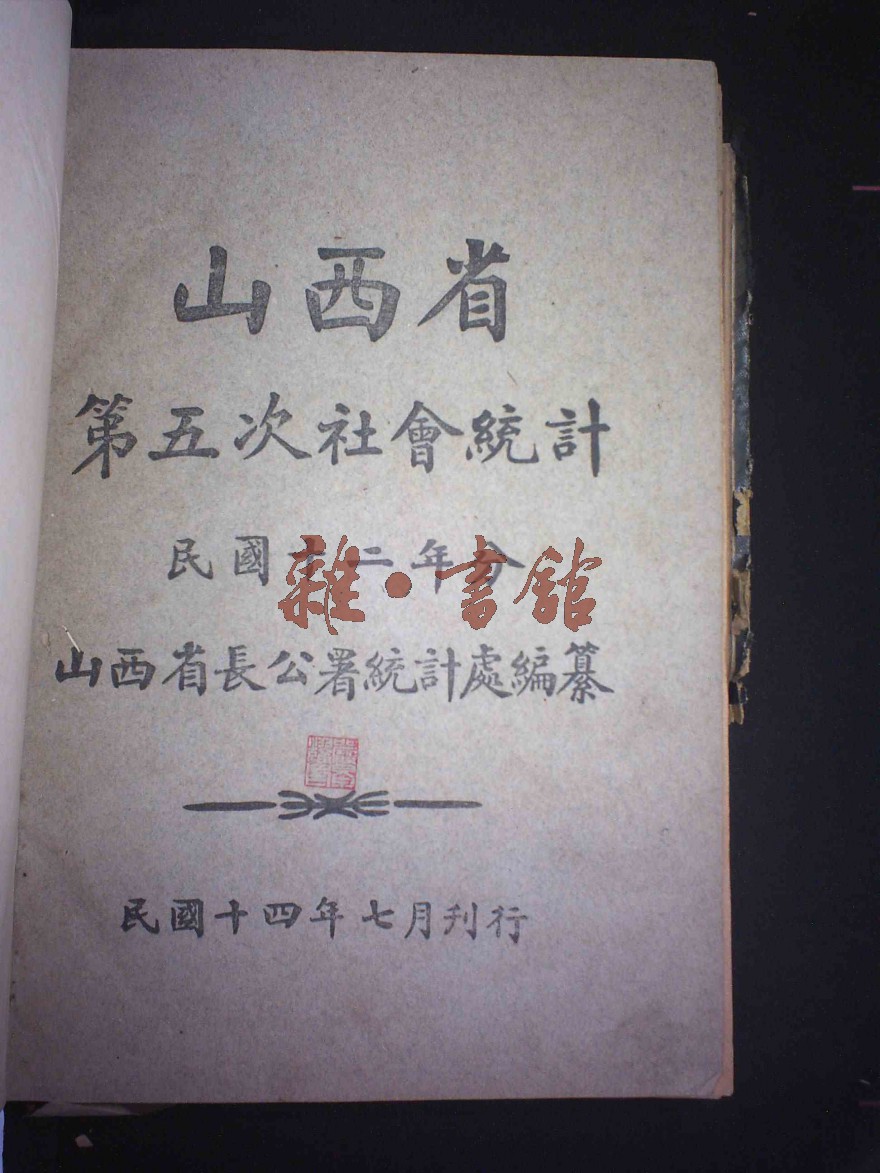 山西省
第五次社會統計
民國十二年分
雜·書館
山西省長公署統計處編纂
民國十四年七月刊行